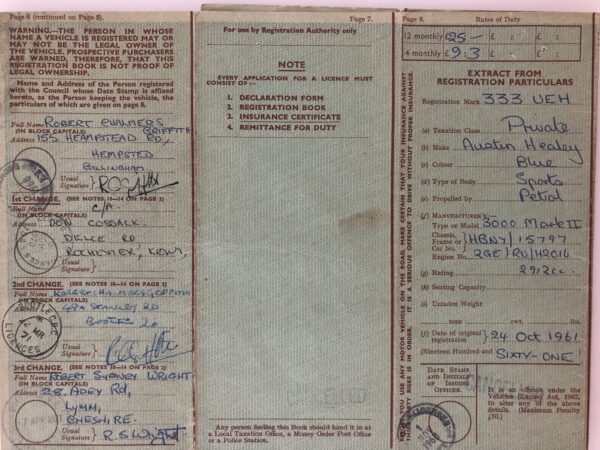 Page 6 (continued on Page 5).
WARNING.—THE PERSON IN WHOSE
NAME A VEHICLE IS REGISTERED MAY OR
MAY NOT BE THE LEGAL OWNER OF
THE VEHICLE. PROSPECTIVE PURCHASERS
ARE WARNED, THEREFORE, THAT THIS
REGISTRATION BOOK IS NOT PROOF OF
LEGAL OWNERSHIP.
Name and Address of the Person registered
with the Council whose Date Stamp is affixed
hereto, as the Person keeping the vehicle, the
particulars of which are given on page 8.
Full Name ROBERT CHALMERS
(IN BLOCK CAPITALS) GRIFFITH
Address 155 HEMPSTEAD RD,
HEMPSTED
GILLINGHAM
Usual
Signature
1ST CHANGE. (SEE NOTES 10—14 ON PAGE 2)
Full Name C/A.
(IN BLOCK CAPITALS)
Address DON COSSACK.
DELCE RD
ROCHESTER, KENT,
Usual
Signature
2ND CHANGE. (SEE NOTES 10—14 ON PAGE 2)
Full Name ROBERT CHALMERS GRIFFITHS
(IN BLOCK CAPITALS)
Address 49A STANLEY RD
BOOTLE 20
BOOTLE C.B.C.
MR
71
LICENCES
Usual
Signature
3RD CHANGE. (SEE NOTES 10—14 ON PAGE 2)
Full Name ROBERT SYDNEY WRIGHT
(IN BLOCK CAPITALS)
Address 28, ADEY RD,
LYMM,
CHESHIRE.
Usual
Signature R.S Wright
Page 7.
For use by Registration Authority only
NOTE
EVERY APPLICATION FOR A LICENCE MUST
CONSIST OF:—
1. DECLARATION FORM
2. REGISTRATION BOOK
3. INSURANCE CERTIFICATE
4. REMITTANCE FOR DUTY
Any person finding this Book should hand it in at
a Local Taxation Office, a Money Order Post Office
or a Police Station.
Page 8. Rates of Duty
12 monthly £25— £ : £ :
4 monthly £9.3 £ : £ :
EXTRACT FROM
REGISTRATION PARTICULARS
Registration Mark 333 UEH
(a) Taxation Class Private
(b) Make Austin Healey
(c) Colour Blue
(d) Type of Body Sports
(e) Propelled by Petrol
(f) MANUFACTURER'S
Type or Model 3000 Mark II
Chassis,
Frame or
Car No. HBN7/15797
Engine No. 29E/RU/H2016
(g) Rating 2912cc.
(h) Seating Capacity
(i) Unladen Weight
tons cwt. lbs.
(j) Date of original
registration 24 Oct 1961
(Nineteen Hundred and SIXTY-ONE)
DATE STAMP
AND INITIALS
OF ISSUING
OFFICER.
It is an offence under the
Vehicles (Excise) Act, 1962,
to alter any of the above
details. (Maximum Penalty
£50.)